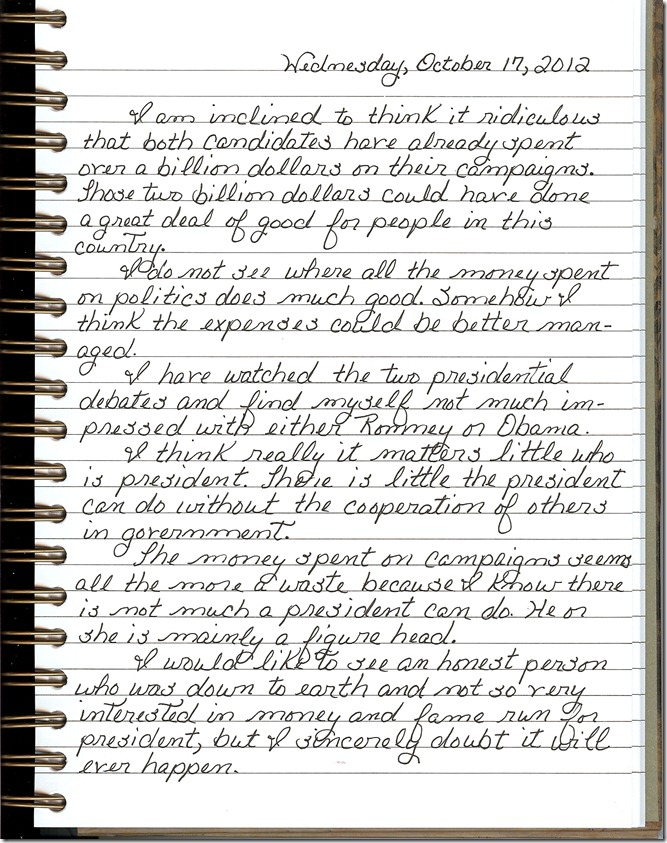 Wednesday, October 17, 2012
I am inclined to think it ridiculous
that both candidates have already spent
over a billion dollars on their campaigns.
Those two billion dollars could have done
a great deal of good for people in this
country.
I do not see where all the money spent
on politics does much good. Somehow I
think the expenses could be better man-
aged.
I have watched the two presidential
debates and find myself not much im-
pressed with either Romney or Obama.
I think really it matters little who
is president. There is little the president
can do without the cooperation of others
in government.
The money spent on campaigns seems
all the more a waste because I know there
is not much a president can do. He or
she is mainly a figure head.
I would like to see an honest person
who was down to earth and not so very
interested in money and fame run for
president, but I sincerely doubt it will
ever happen.